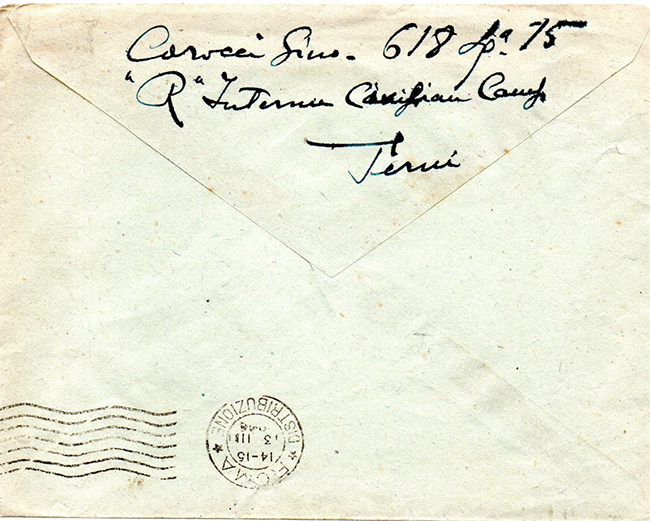 Carocci Gino - 618 Spa 75
"R" Internee Civilian Camp
Terni
ROMA
DISTRIBUZIONE
14-15
III